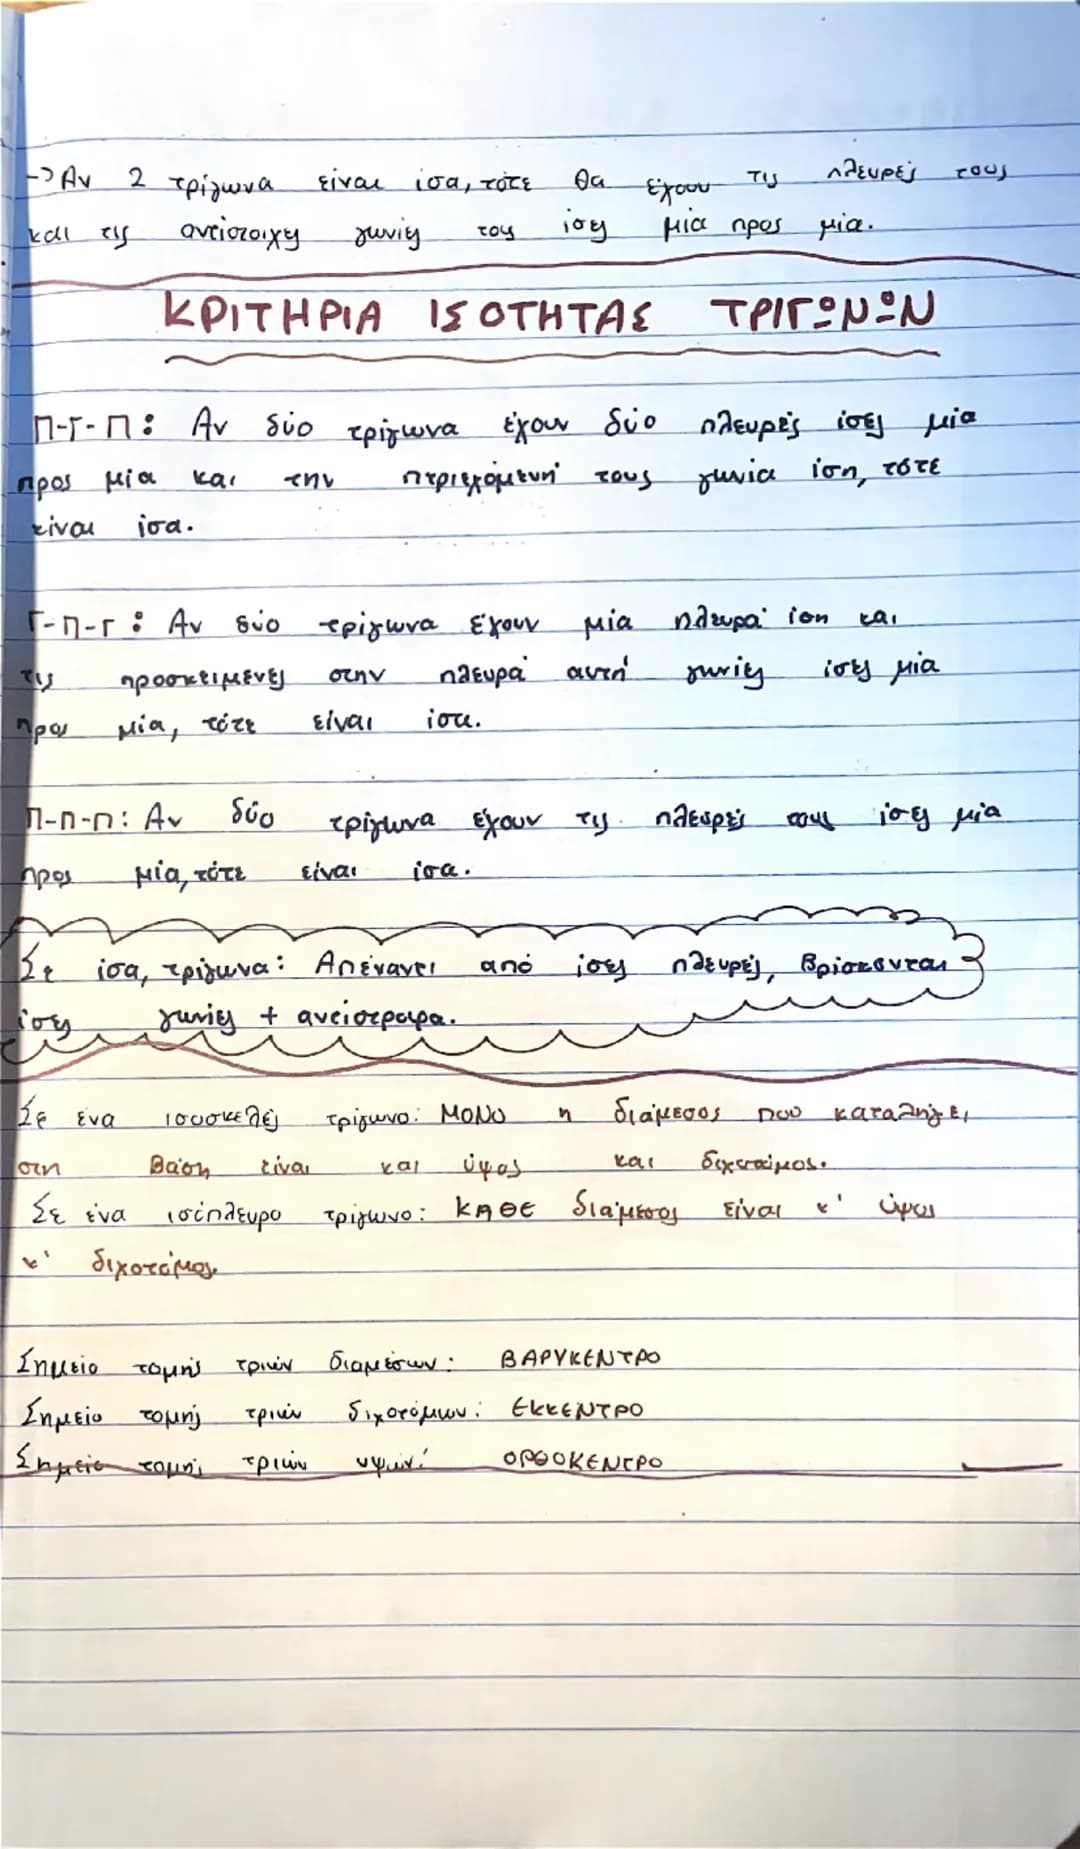 →Αν 2 τρίγωνα είναι ίσα, τότε θα έχουν τις πλευρές τους
και τις αντίστοιχες γωνίες τους ίσες μία προς μία.
ΚΡΙΤΗΡΙΑ ΙΣΟΤΗΤΑΣ ΤΡΙΓΩΝΩΝ
Π-Γ-Π: Αν δύο τρίγωνα έχουν δύο πλευρές ίσες μία
προς μία και την περιεχόμενη τους γωνία ίση, τότε
είναι ίσα.
Γ-Π-Γ: Αν δύο τρίγωνα έχουν μία πλευρά ίση και
τις προσκείμενες στην πλευρά αυτή γωνίες ίσες μία
προς μία, τότε είναι ίσα.
Π-Π-Π: Αν δύο τρίγωνα έχουν τις πλευρές τους ίσες μία
προς μία, τότε είναι ίσα.
Σε ίσα, τρίγωνα: Απέναντι από ίσες πλευρές, βρίσκονται
ίσες γωνίες + αντίστροφα.
Σε ένα ισοσκελές τρίγωνο: ΜΟΝΟ η διάμεσος που καταλήγει
στη βάση είναι και ύψος και διχοτόμος.
Σε ένα ισόπλευρο τρίγωνο: ΚΑΘΕ διάμεσος είναι κ' ύψος
κ' διχοτόμος.
Σημείο τομής τριών διαμέσων: ΒΑΡΥΚΕΝΤΡΟ
Σημείο τομής τριών διχοτόμων: ΕΚΚΕΝΤΡΟ
Σημείο τομής τριών υψών: ΟΡΘΟΚΕΝΤΡΟ